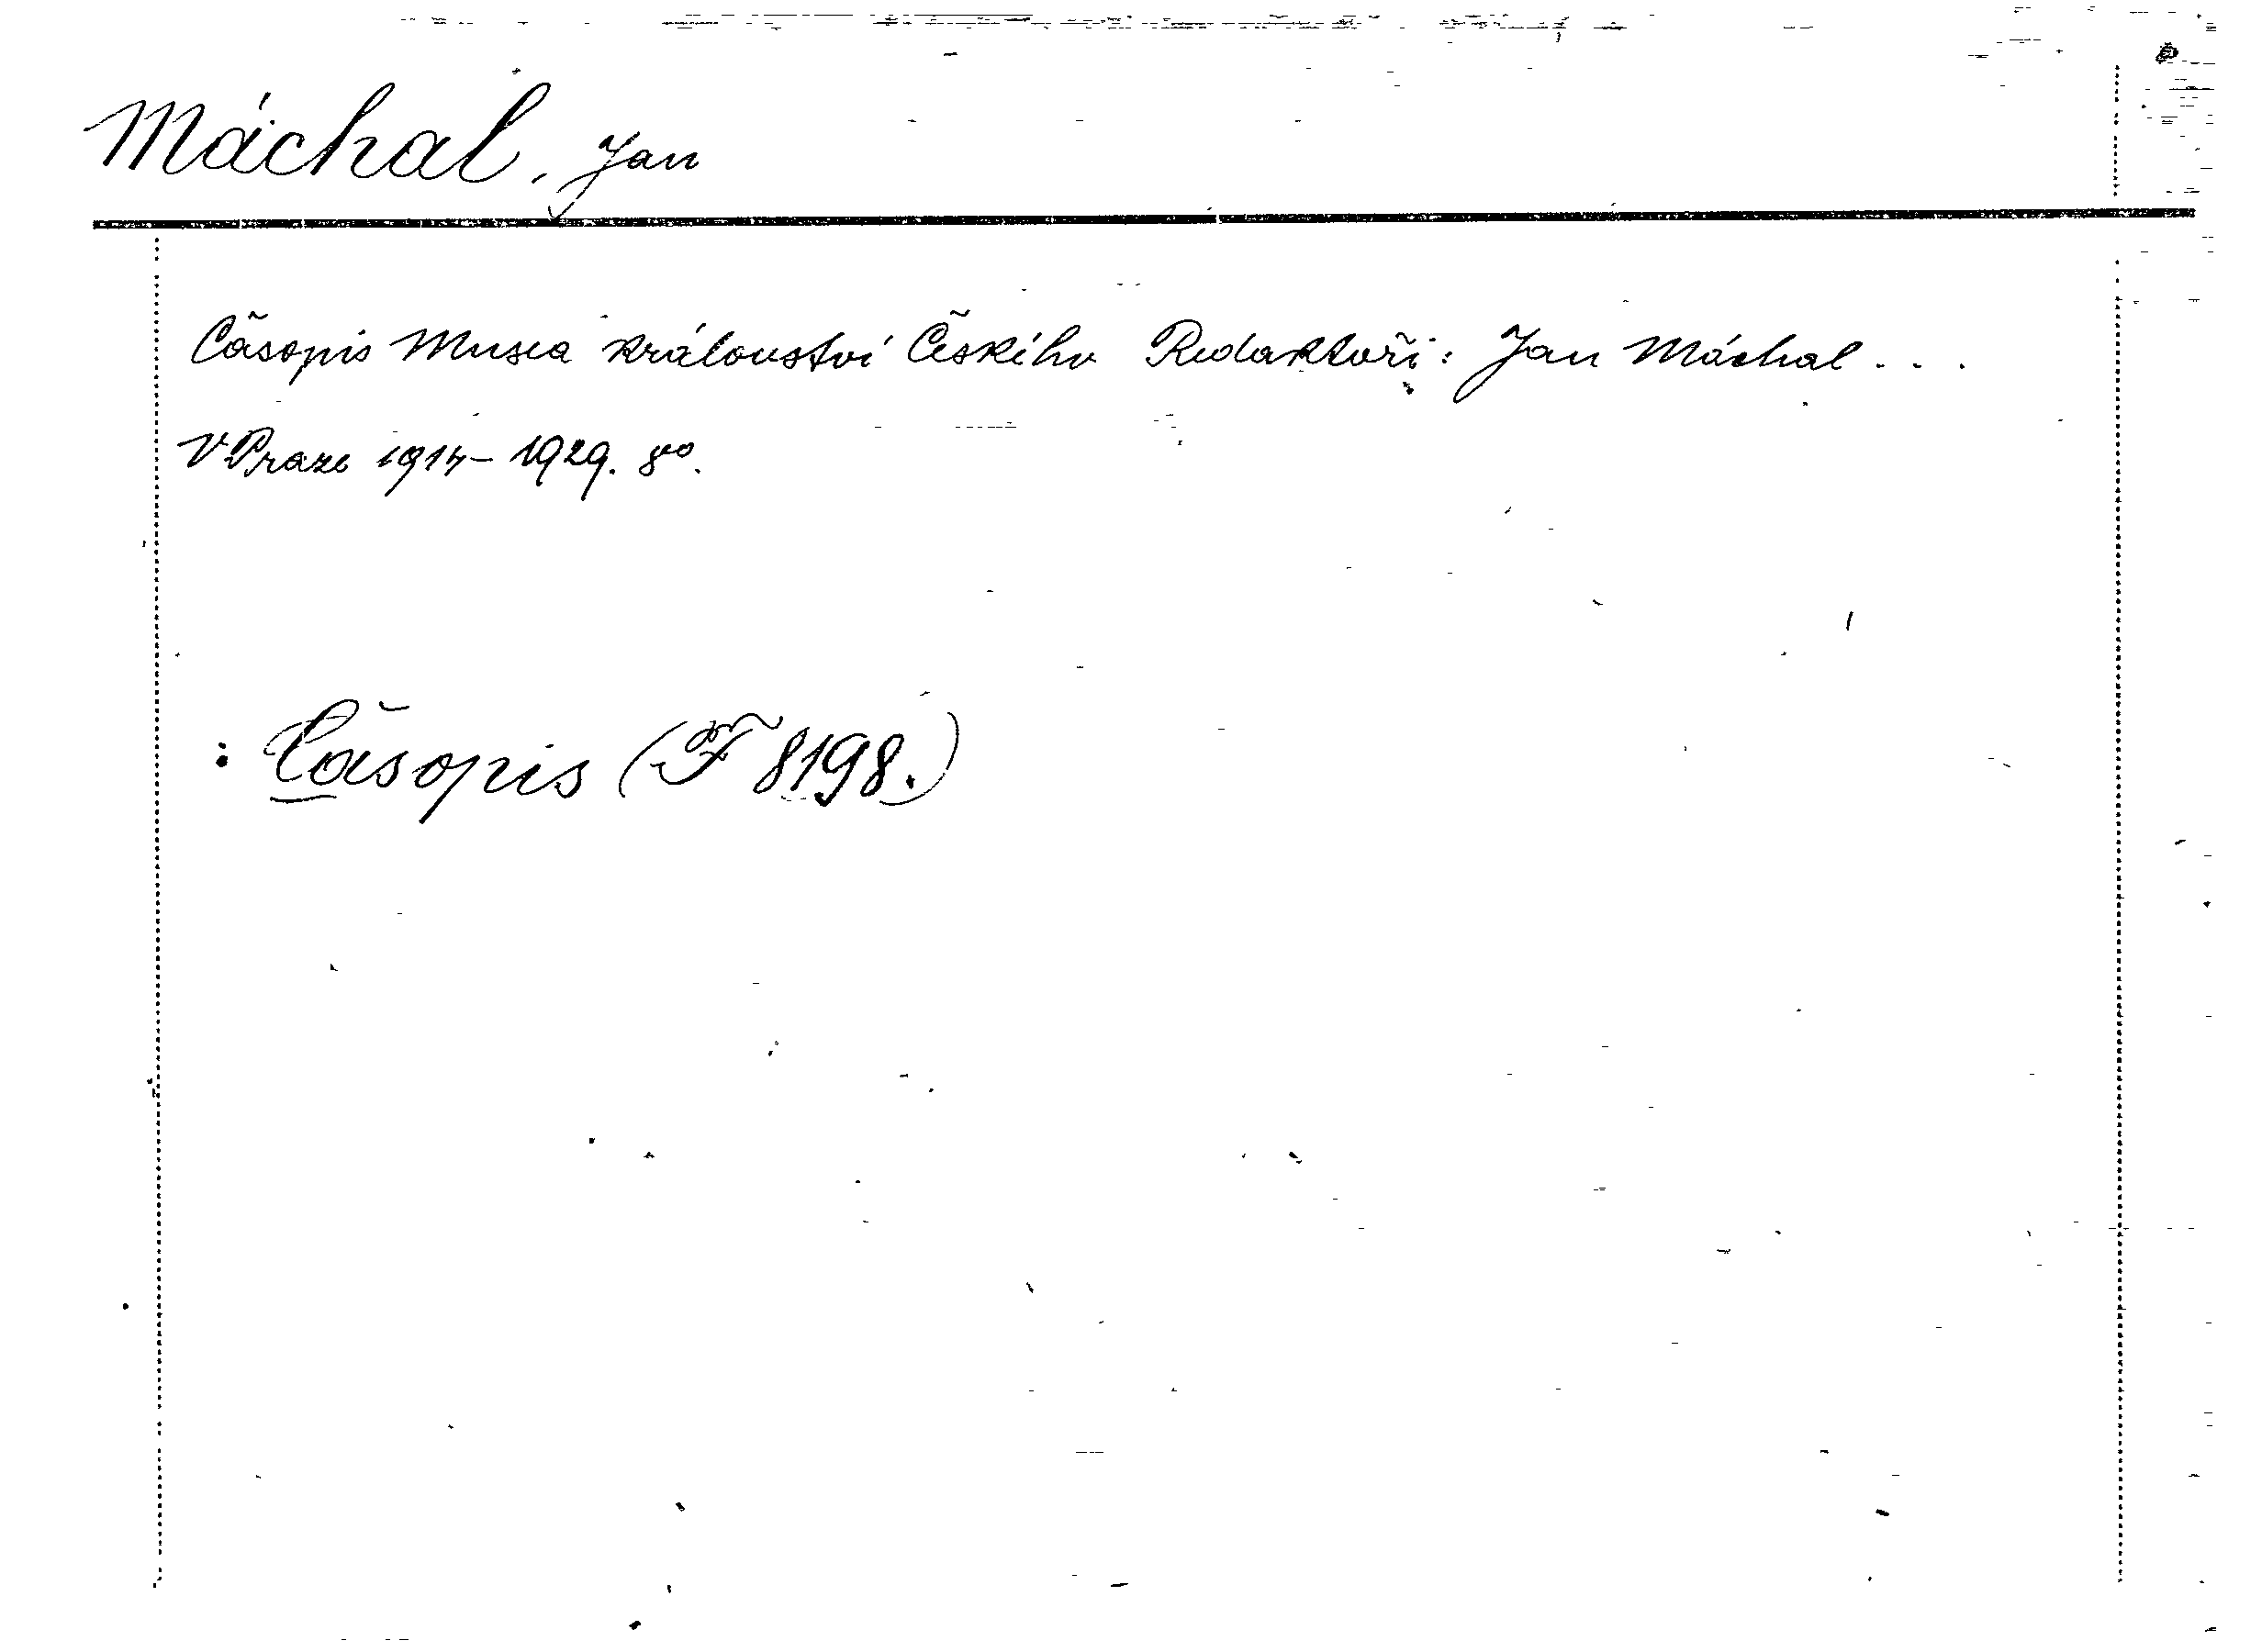 Máchal, Jan
Časopis Musea království Českého Redaktoři: Jan Máchal . . .
V Praze 1914–1929. 8vo.
: Časopis (F 8198.)